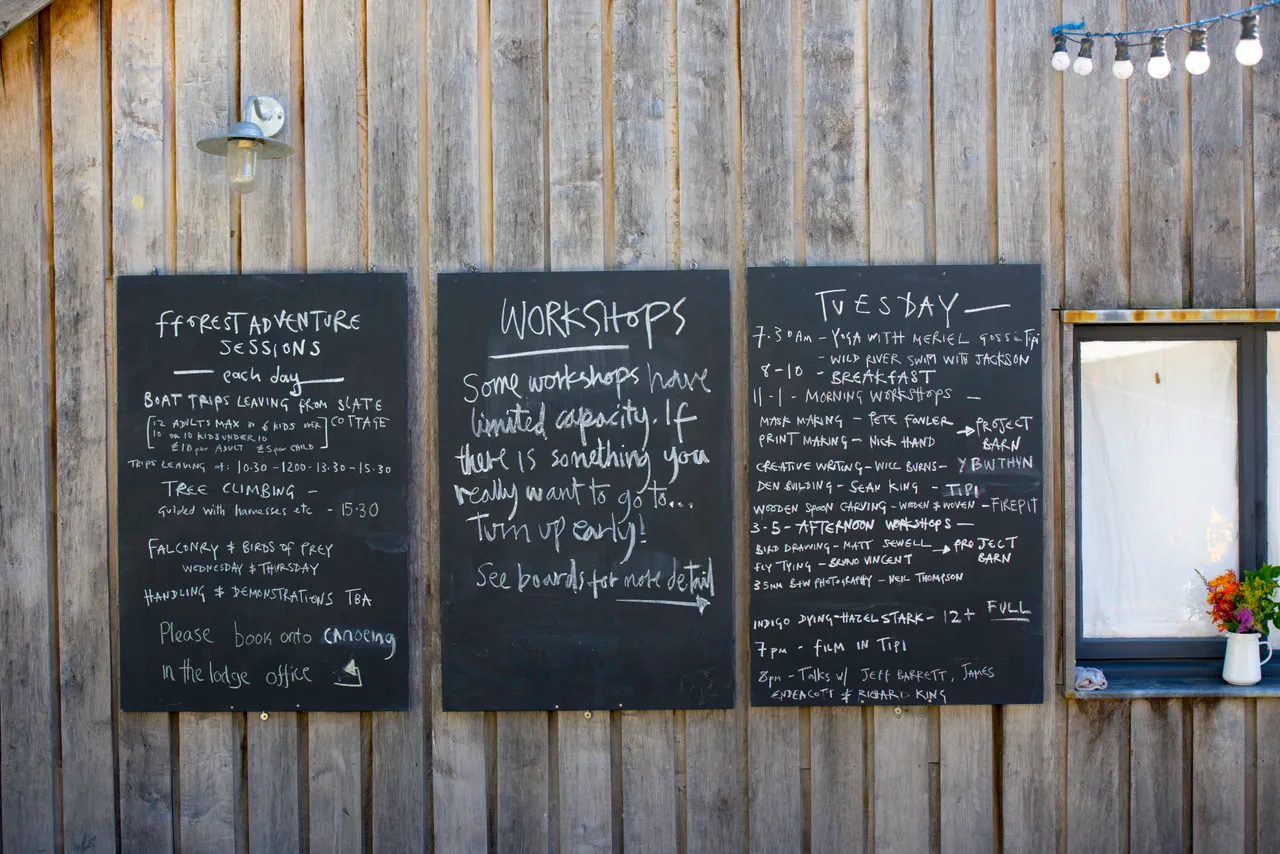 fforest ADVENTURE
SESSIONS
— each day —
BOAT TRIPS LEAVING FROM SLATE
COTTAGE
[12 ADULTS MAX or 6 KIDS OVER
10 or 10 KIDS UNDER 10
£10 per ADULT £5 per CHILD]
TRIPS LEAVING at: 10:30 - 1200 - 13:30 - 15.30
TREE CLIMBING —
Guided with harnesses etc - 15:30
FALCONRY & BIRDS OF PREY
WEDNESDAY & THURSDAY
HANDLING & DEMONSTRATIONS TBA
Please book onto canoeing
in the lodge office
WORKSHOPS
Some workshops have
limited capacity. If
there is something you
really want to go to...
Turn up early!
See boards for more detail
TUESDAY —
7.30AM - YOGA WITH MERIEL GOSS in Tipi
- WILD RIVER SWIM WITH JACKSON
8-10 - BREAKFAST
11-1 - MORNING WORKSHOPS —
MASK MAKING - PETE FOWLER
PRINT MAKING - NICK HAND
→ PROJECT
BARN
CREATIVE WRITING - WILL BURNS - YBWTHYN
DEN BUILDING - SEAN KING - TIPI
WOODEN SPOON CARVING - WOODEN & WOVEN - FIREPIT
3-5 - AFTERNOON WORKSHOPS —
BIRD DRAWING - MATT SEWELL
→ PROJECT
BARN
FLY TYING - BRUNO VINCENT
35mm B+W PHOTOGRAPHY - NEIL THOMPSON
INDIGO DYING - HAZEL STARK - 12+ FULL
7pm - FILM IN TIPI
8pm - Talks w/ JEFF BARRETT, JAMES
ENDEACOTT & RICHARD KING